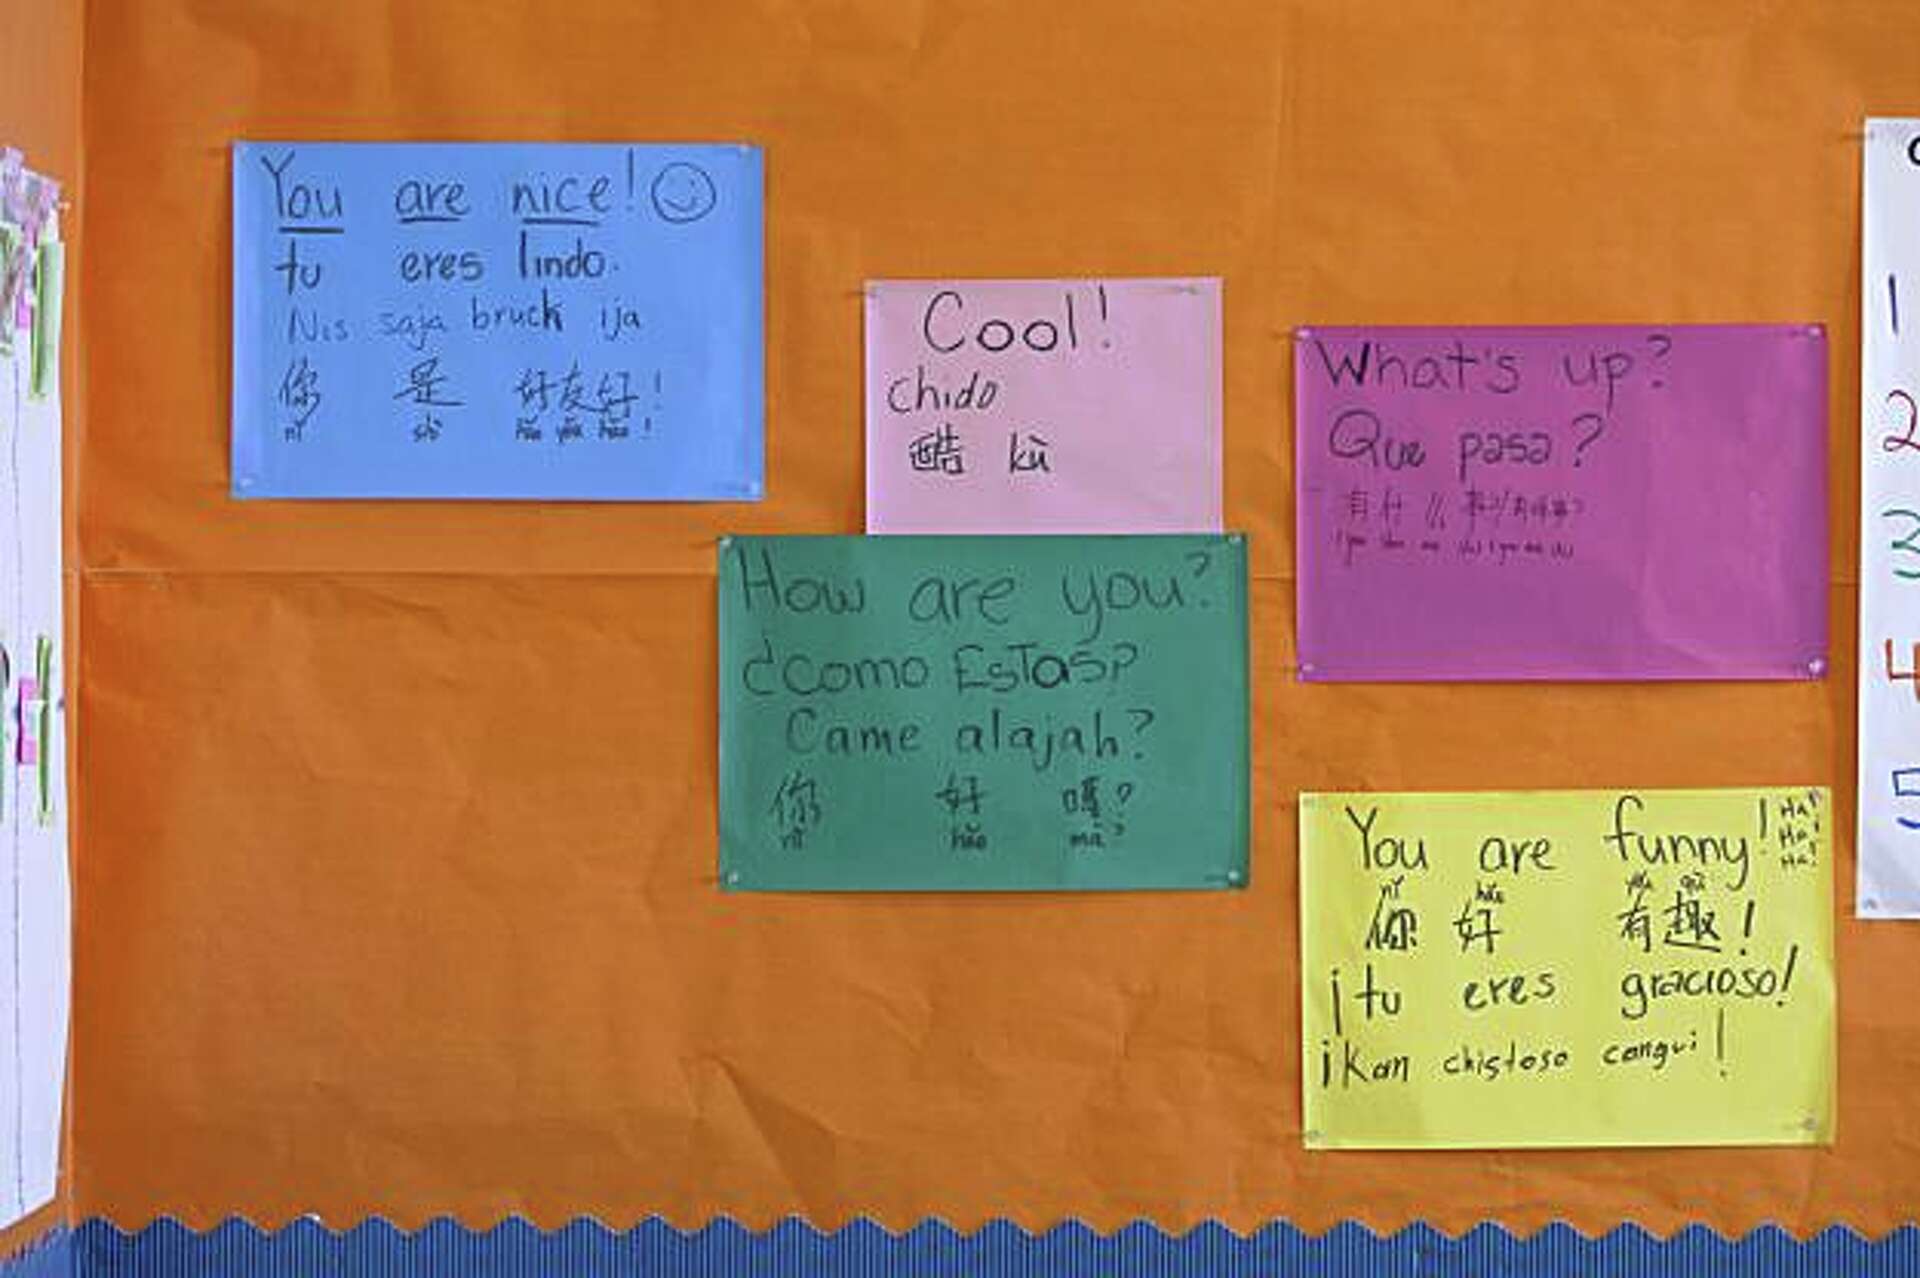 You are nice!
tu eres lindo.
Nis saja bruck ija
你 是 好友好!
nǐ shì hǎo yǒu hǎo!
Cool!
chido
酷 kù
What's up?
Que pasa?
How are you?
¿como EsTas?
Came alajah?
你 好 嗎?
nǐ hǎo mā?
You are funny! Ha! Ha! Ha!
nǐ hǎo yǒu qù
你 好 有趣!
¡tu eres gracioso!
¡Kan chistoso cangui!
1
2
3
4
5